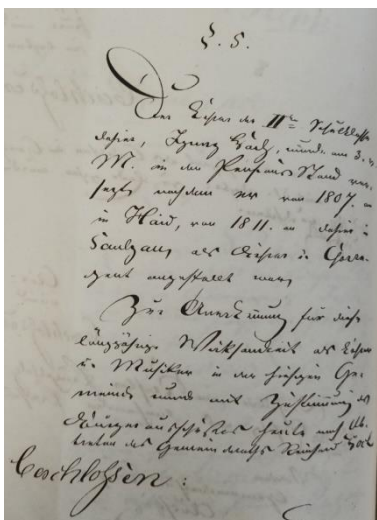 §. 5.
Der Lehrer der IIten Schulklasse
dahier, Ignaz, wurde am 3. v.
M. in den Pensions Stand ver-
setzt nachdem er von 1807. an
in Haid, von 1811. an dahier in
Saulgau, als Lehrer u. Chorre-
gent angestellt war,
Zur Anerkennung für diese
langjährige Wirksamkeit als Lehrer
u. Musiker in der hiesigen Ge-
meinde wurde mit Zustimmung des
Bürgerausschußes heute nach Ab-
treten des Gemeinderaths
beschlossen: